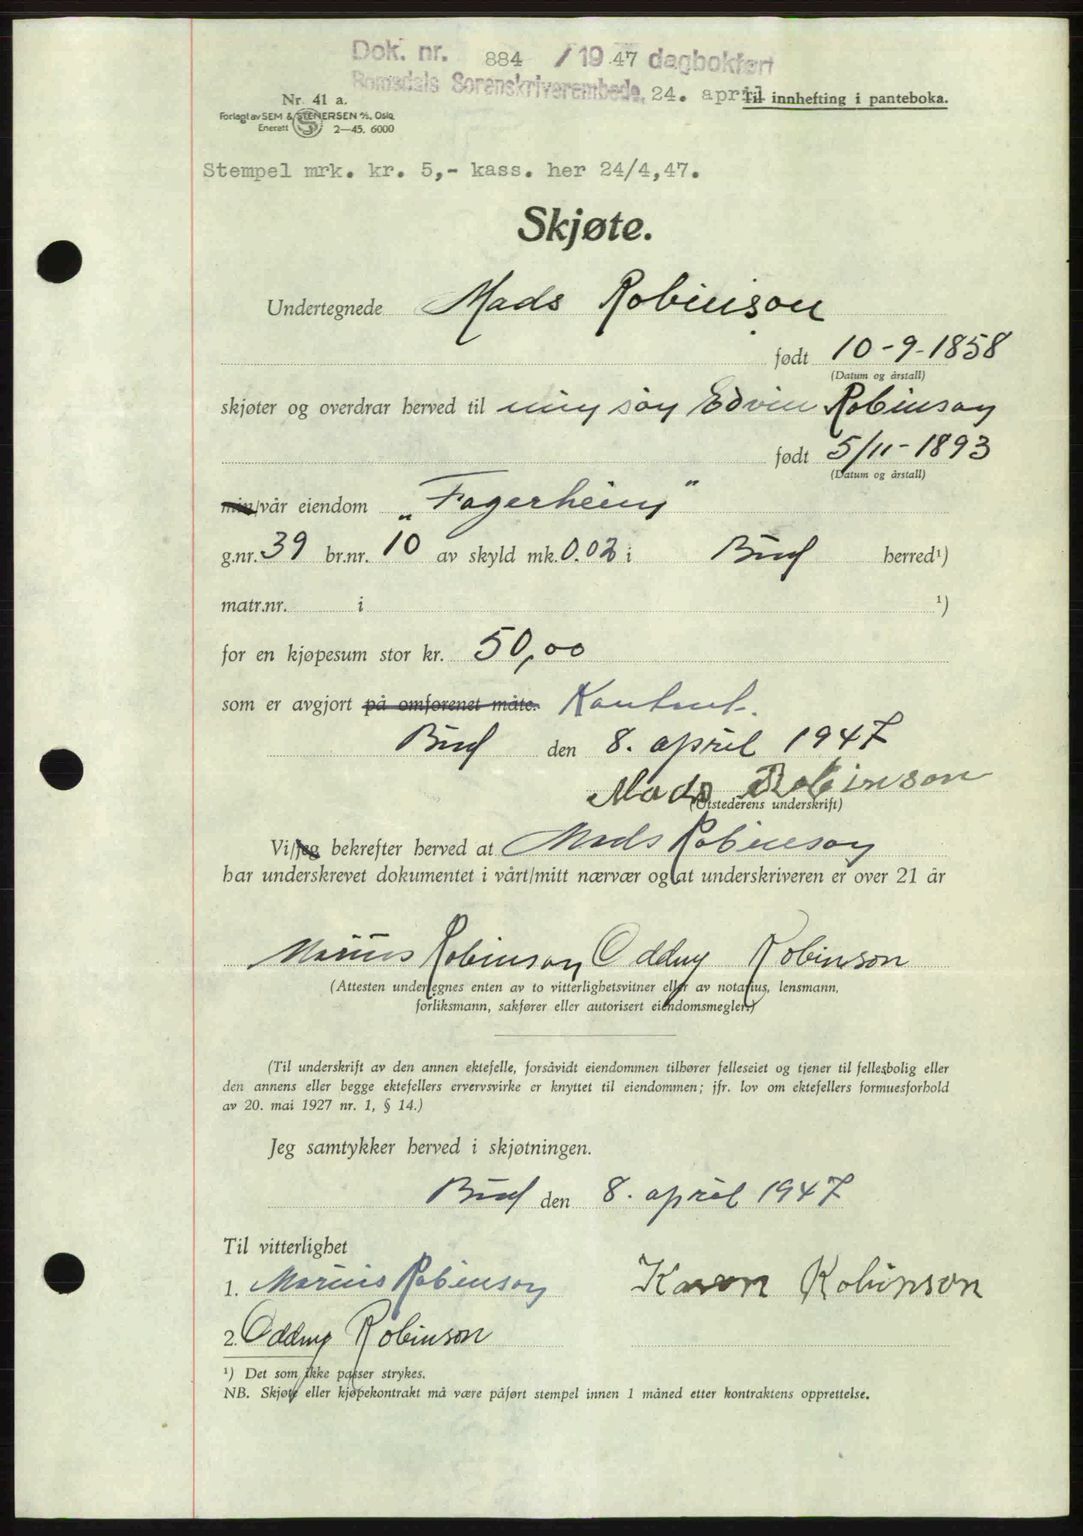 Dok. nr. 884 / 19 47 dagbokført
Romsdals Sorenskriverembede, 24. april
Til innhefting i panteboka.
Nr. 41 a.
Forlagt av SEM & STENERSEN A/S, Oslo
Enerett 2—45. 6000
Stempel mrk. kr. 5,- kass. her 24/4,47.
Skjøte.
Undertegnede Mads Robinson
født 10-9-1858
(Datum og årstall)
skjøter og overdrar herved til min søn Edvin Robinson
født 5/11-1893
(Datum og årstall)
min/vår eiendom „Fagerheim"
g.nr. 39 br.nr. 10 av skyld mk. 0.02 i Bud herred¹)
matr.nr. i ¹)
for en kjøpesum stor kr. 50,00
som er avgjort på omforenet måte. Kontant.
Bud den 8. april 1947
Mads Robinson
(Utstederens underskrift)
Vi/jeg bekrefter herved at Mads Robinson
har underskrevet dokumentet i vårt/mitt nærvær og at underskriveren er over 21 år
Marius Robinson Oddny Robinson
(Attesten undertegnes enten av to vitterlighetsvitner eller av notarius, lensmann,
forliksmann, sakfører eller autorisert eiendomsmegler.)
(Til underskrift av den annen ektefelle, forsåvidt eiendommen tilhører felleseiet og tjener til fellesbolig eller
den annens eller begge ektefellers ervervsvirke er knyttet til eiendommen; jfr. lov om ektefellers formuesforhold
av 20. mai 1927 nr. 1, § 14.)
Jeg samtykker herved i skjøtningen.
Bud den 8. april 1947
Til vitterlighet
1. Marius Robinson Karen Robinson
2. Oddny Robinson
¹) Det som ikke passer strykes.
NB. Skjøte eller kjøpekontrakt må være påført stempel innen 1 måned etter kontraktens opprettelse.